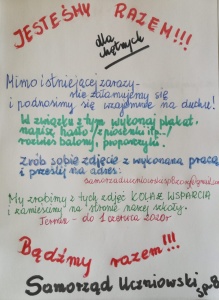 JESTEŚMY RAZEM!!!
dla chętnych
Mimo istniejącej zarazy -
nie załamujemy się
i podnosimy się wzajemnie na duchu!
W związku z tym wykonaj plakat,
napisz hasło/piosenki itp./
rozwieś balony, proporczyki.
Zrób sobie zdjęcie z wykonaną pracą
i prześlij na adres:
My zrobimy z tych zdjęć KOLAŻ WSPARCIA
i zamieścimy na stronie naszej szkoły.
Termin - do 1 czerwca 2020r
Bądźmy razem!!!
Samorząd Uczniowski